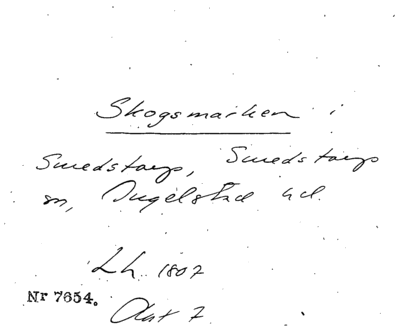 Skogsmarken i
Smedstorp, Smedstorps
sn, Ingelstad hd.
Lh. 1807
Nr 7654.
Akt 7